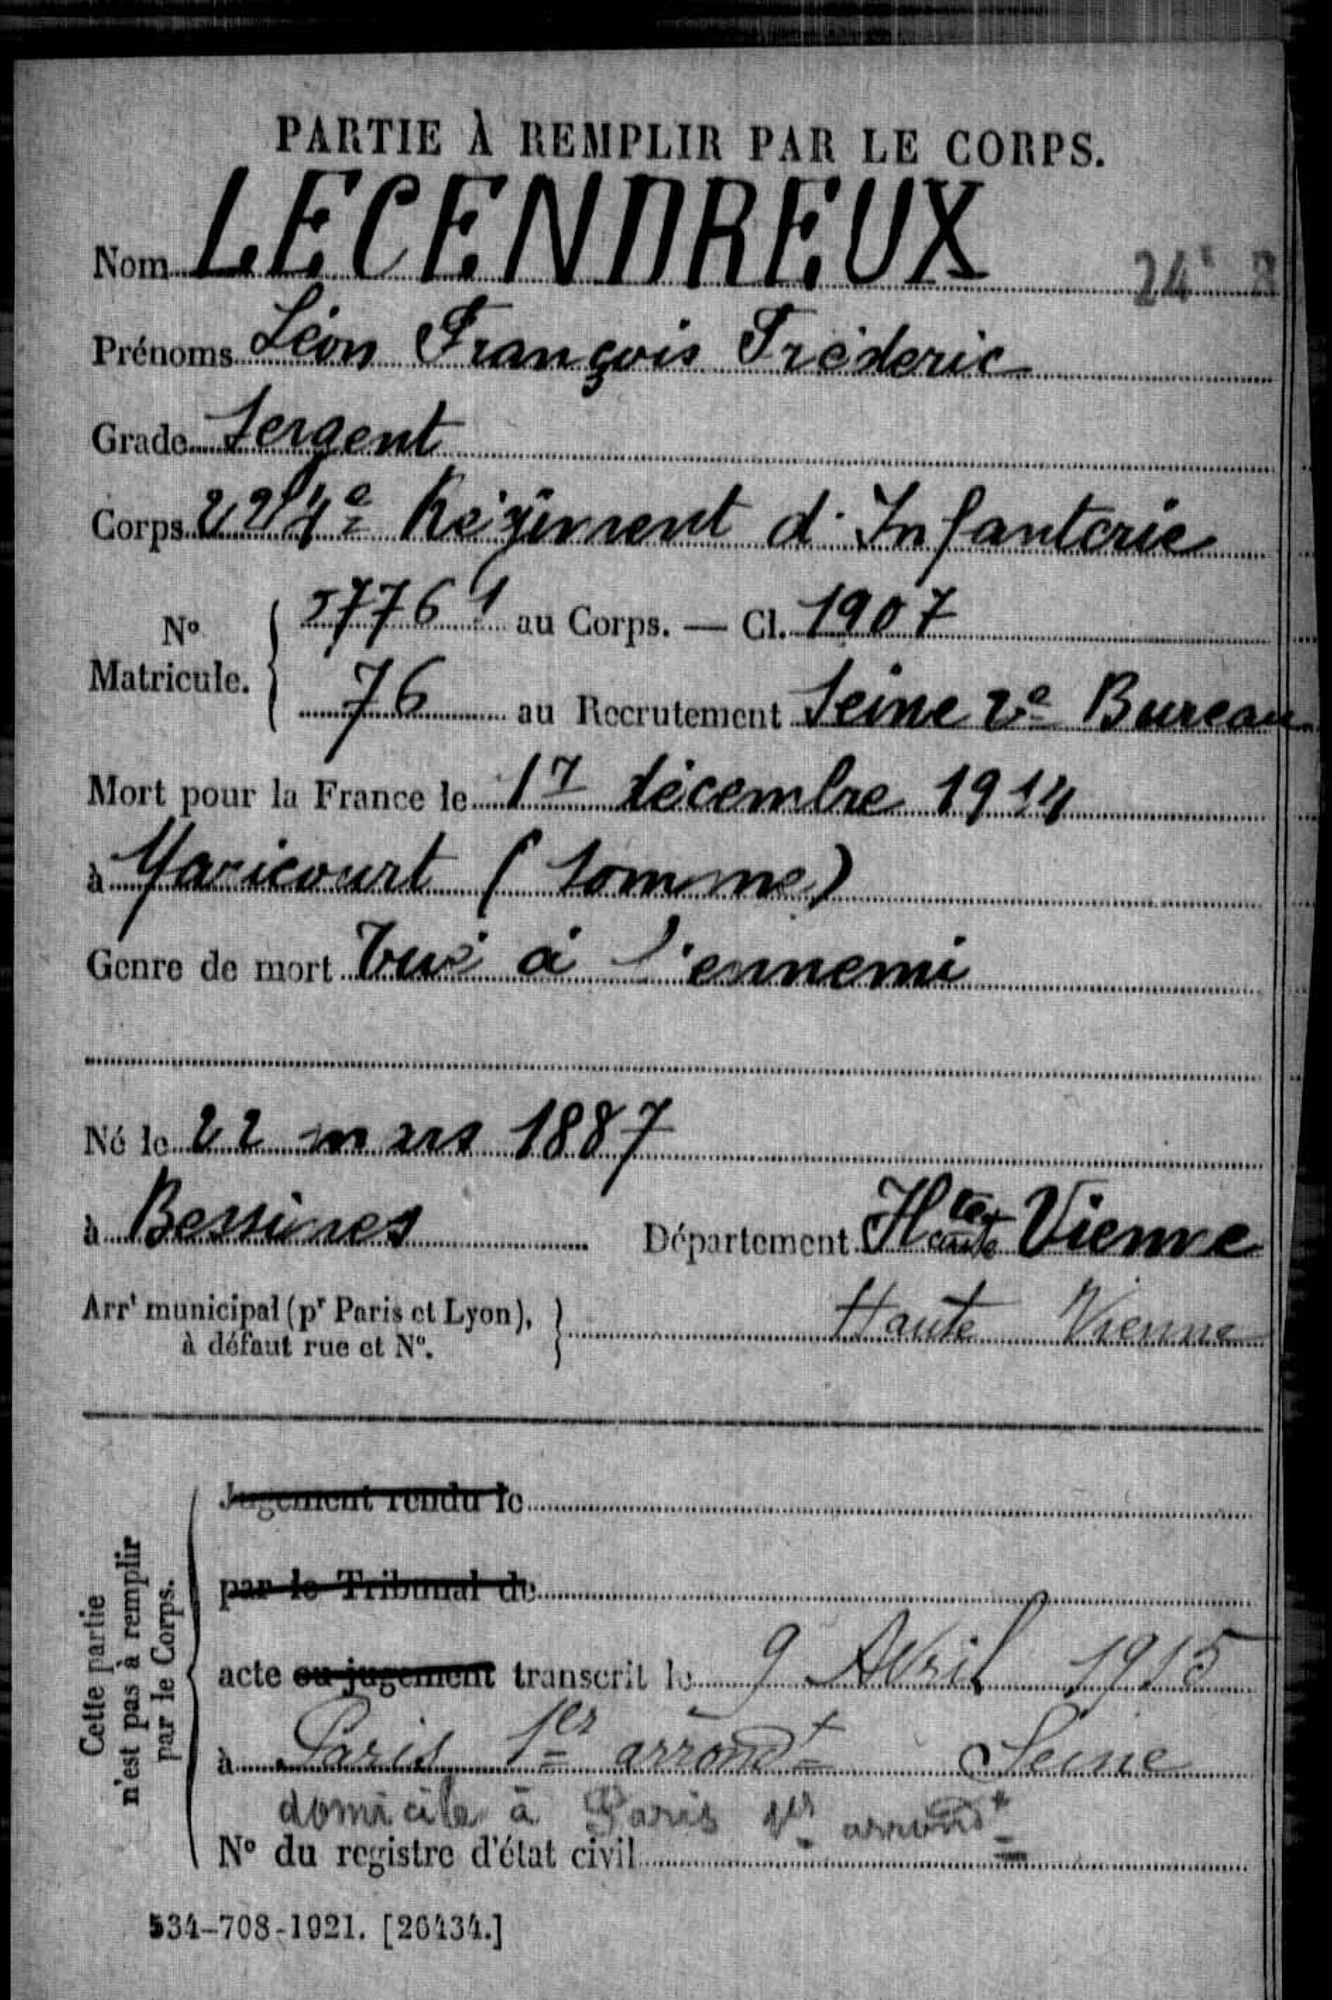 PARTIE À REMPLIR PAR LE CORPS.
Nom LECENDREUX
24
Prénoms Léon François Fréderic
Grade Sergent
Corps 224e Régiment d'Infanterie
N° Matricule. 57761 au Corps. — Cl. 1907
76 au Recrutement Seine 2e Bureau
Mort pour la France le 17 décembre 1914
à Maricourt (Somme)
Genre de mort Tué à l'ennemi
Né le 22 mars 1887
à Bessines Département Hte Vienne
Arrt municipal (pr Paris et Lyon), à défaut rue et N°. Haute Vienne
Cette partie n'est pas à remplir par le Corps.
Jugement rendu le
par le Tribunal de
acte ou jugement transcrit le 9 Avril 1915
à Paris 1er arrondt Seine
domicile à Paris 1er arrondt
N° du registre d'état civil
534-708-1921. [26434.]